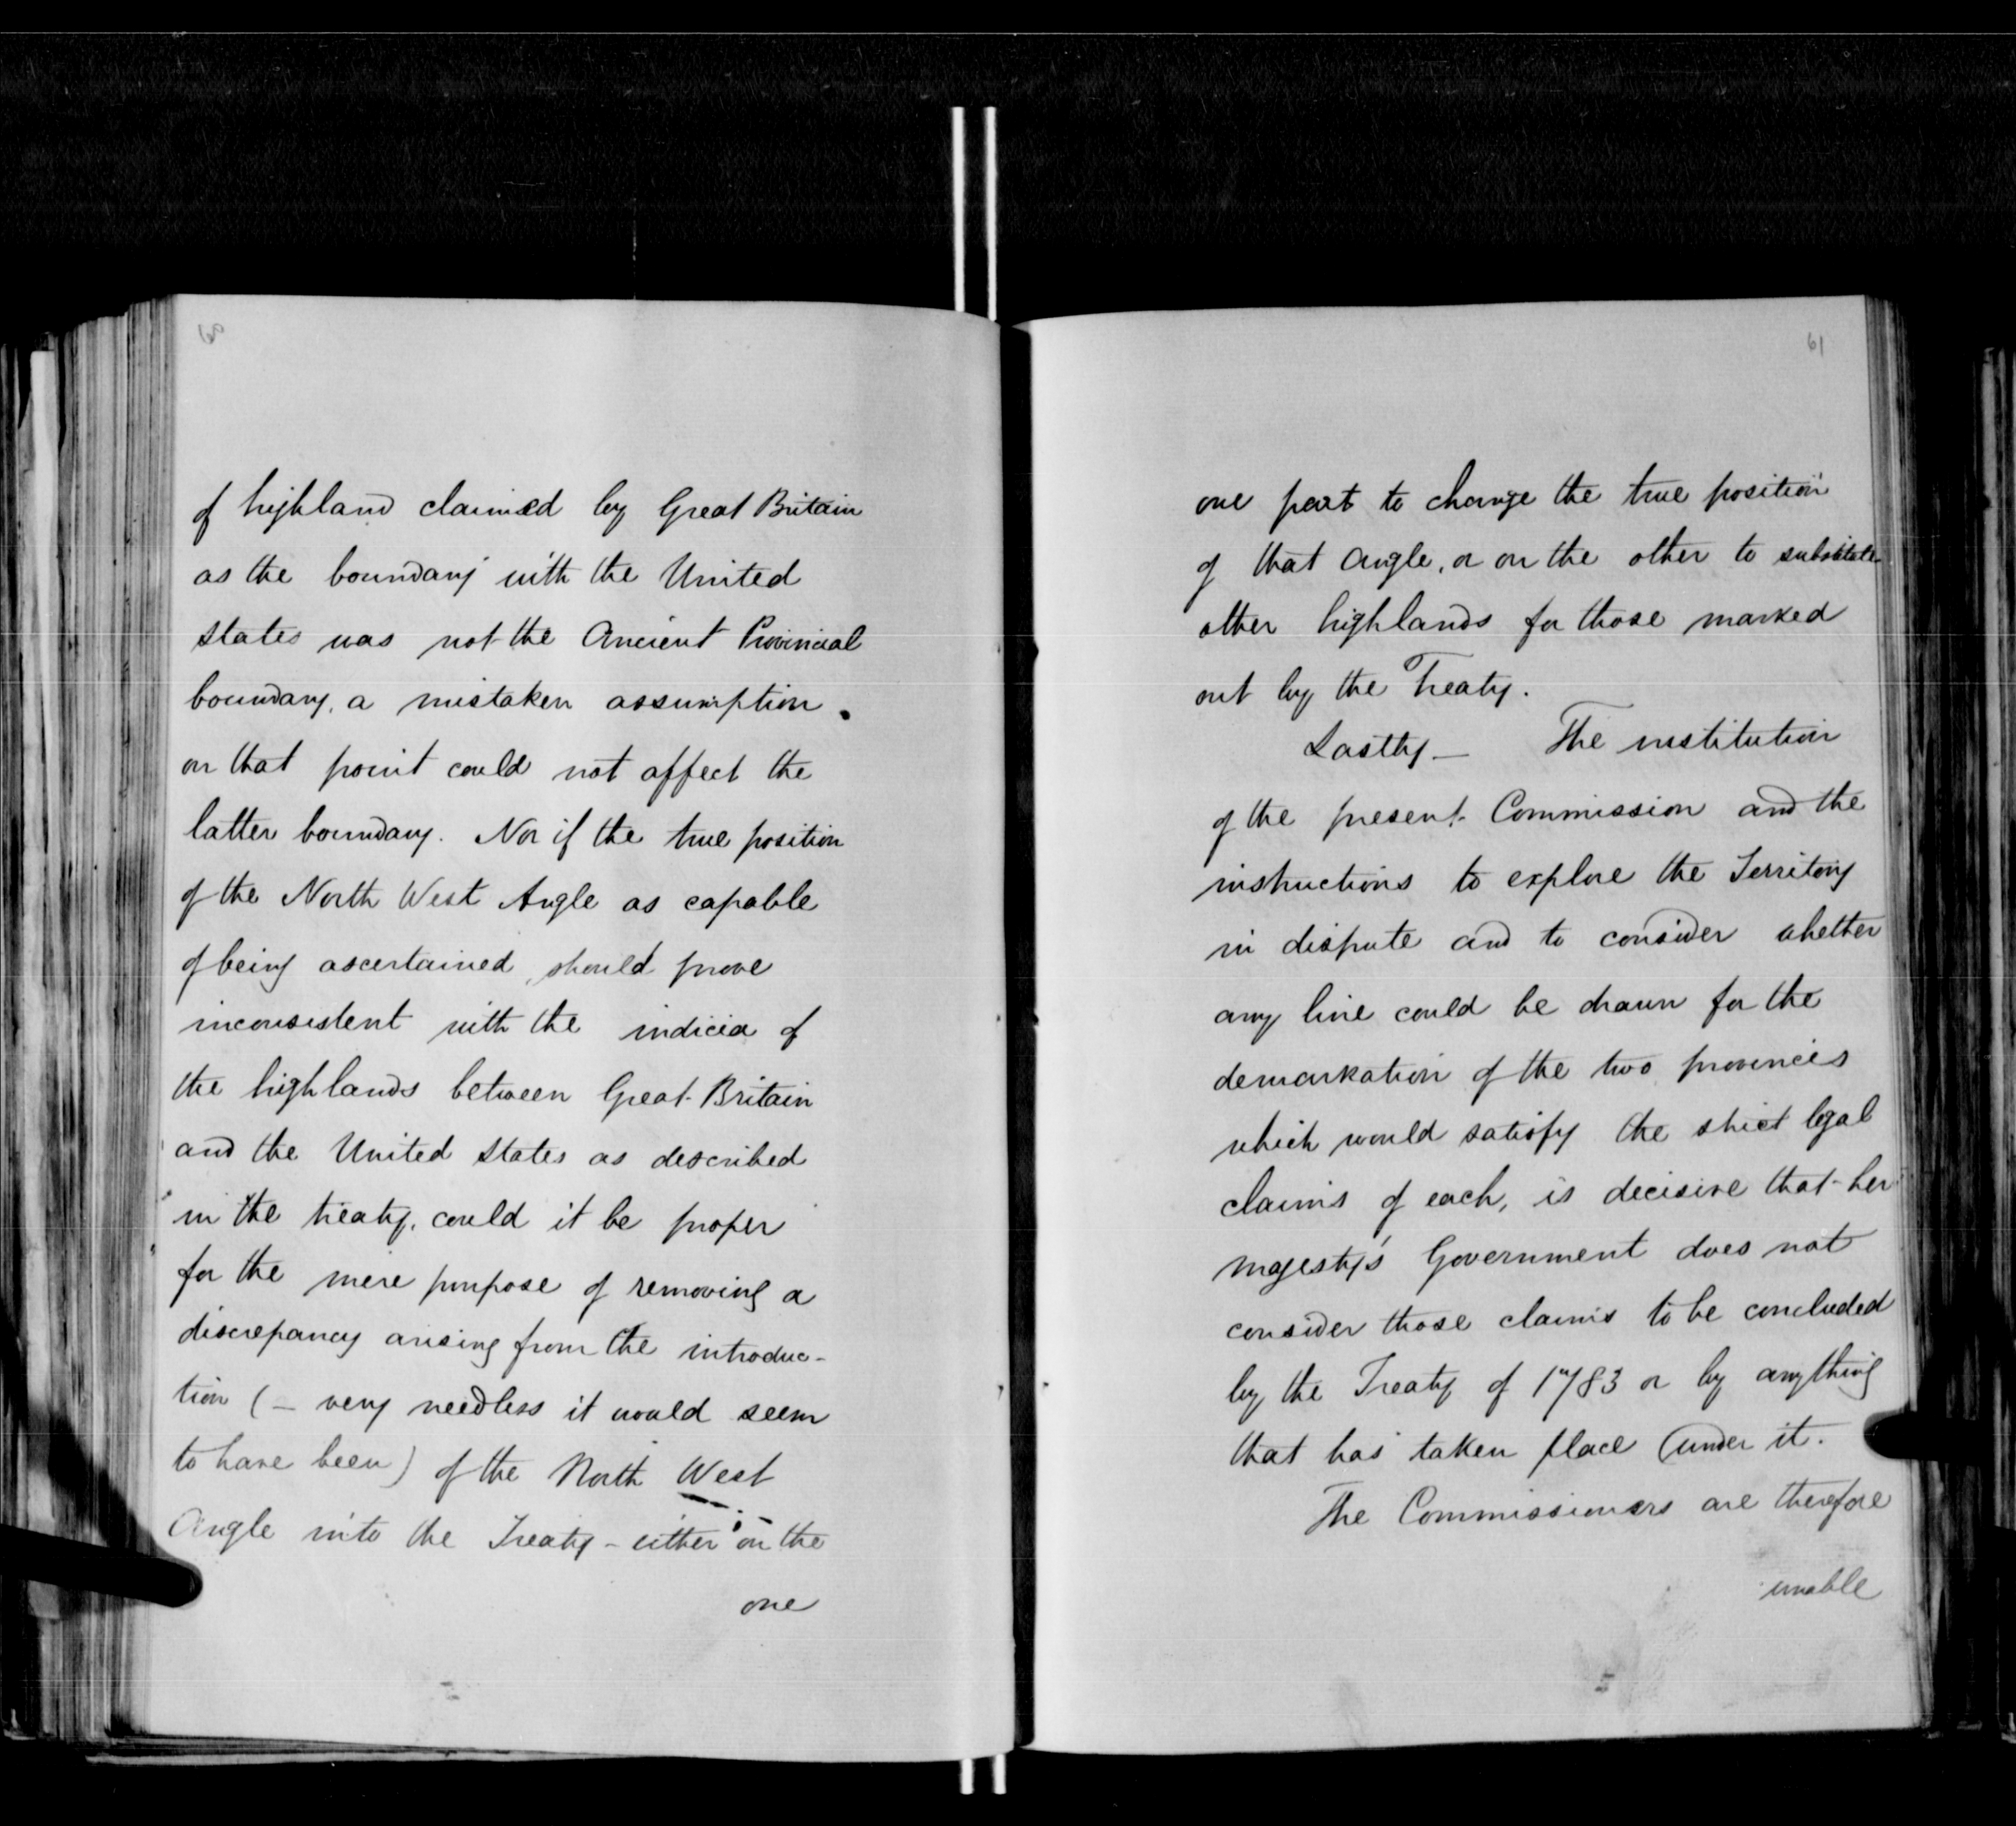 60
of highland claimed by Great Britain
as the boundary with the United
States was not the Ancient Provincial
boundary, a mistaken assumption
on that point could not affect the
latter boundary. Nor if the true position
of the North West Angle as capable
of being ascertained, should prove
inconsistent with the indicia of
the highlands between Great Britain
and the United States as described
in the treaty, could it be proper
for the mere purpose of removing a
discrepancy arising from the introduc-
tion (– very needless it would seem
to have been) of the North West
Angle into the Treaty – either on the
one
61
one part to change the true position
of that Angle, or on the other to substitute
other highlands for those marked
out by the Treaty.
Lastly – The institution
of the present Commission and the
instructions to explore the Territory
in dispute and to consider whether
any line could be drawn for the
demarkation of the two provinces
which would satisfy the strict legal
claims of each, is decisive that her
majesty's Government does not
consider those claims to be concluded
by the Treaty of 1783 or by anything
that has taken place under it.
The Commissioners are therefore
unable